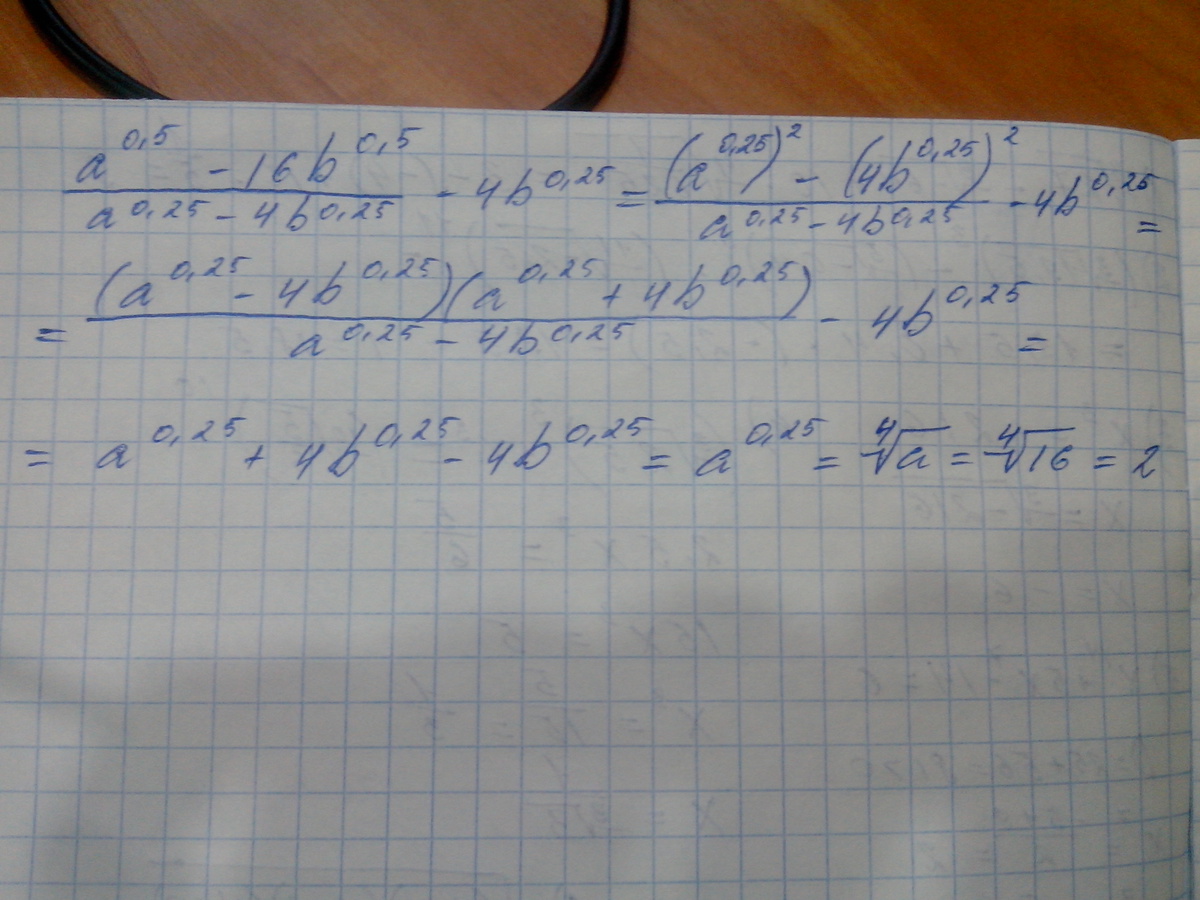 (a^0,5 - 16b^0,5)/(a^0,25 - 4b^0,25) - 4b^0,25 = ((a^0,25)^2 - (4b^0,25)^2)/(a^0,25 - 4b^0,25) - 4b^0,25 =
= ((a^0,25 - 4b^0,25)(a^0,25 + 4b^0,25))/(a^0,25 - 4b^0,25) - 4b^0,25 =
= a^0,25 + 4b^0,25 - 4b^0,25 = a^0,25 = ∜a = ∜16 = 2